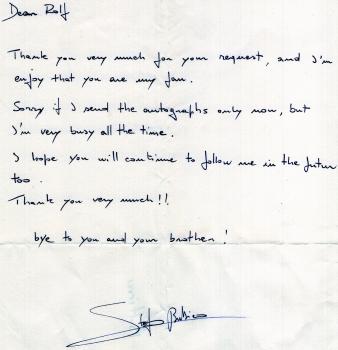 Dear Rolf
Thank you very much for your request, and I'm
enjoy that you are my fan.
Sorry if I send the autographs only now, but
I'm very busy all the time.
I hope you will continue to follow me in the futur
too.
Thank you very much!!
bye to you and your brother!